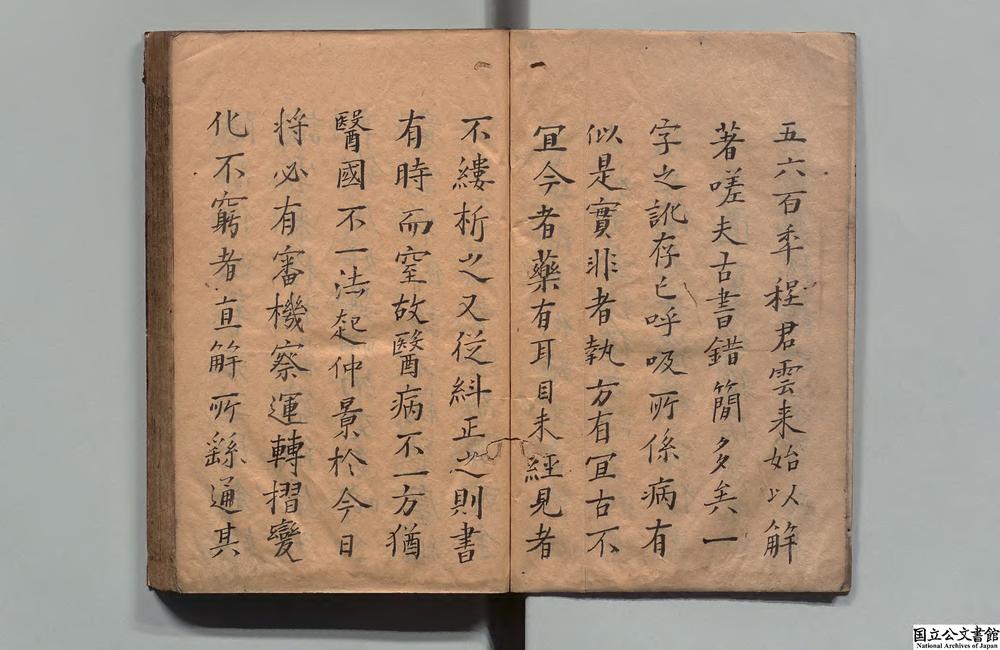 五六百年程君雲来始以解
著嗟夫古書錯簡多矣一
字之訛存亡呼吸所係病有
似是實非者執方有宜古不
宜今者藥有耳目未經見者
不縷析之又從糾正之則書
有時而窒故醫病不一方猶
醫國不一法起仲景於今日
將必有審機察運轉摺變
化不窮者直解所繇通其
国立公文書館
National Archives of Japan